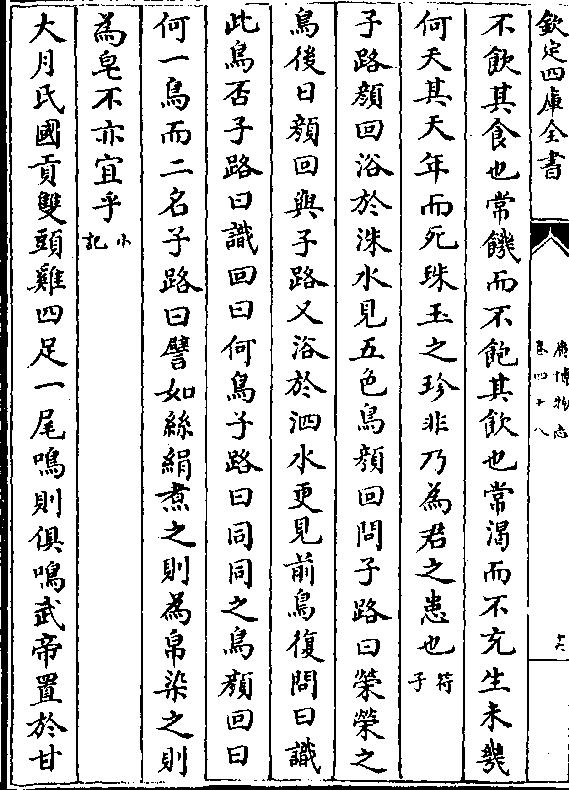 欽定四庫全書
廣博物志
卷四十八
不飲其食也常饑而不飽其飲也常渴而不充生未幾
何夭其天年而死珠玉之珍非乃為君之患也符子
子路顏回浴於洙水見五色鳥顏回問子路曰榮榮之
鳥後日顏回與子路又浴於泗水更見前鳥復問曰識
此鳥否子路曰識回曰何鳥子路曰同同之鳥顏回曰
何一鳥而二名子路曰譬如絲絹煮之則為帛染之則
為皂不亦宜乎小記
大月氏國貢雙頭雞四足一尾鳴則俱鳴武帝置於甘